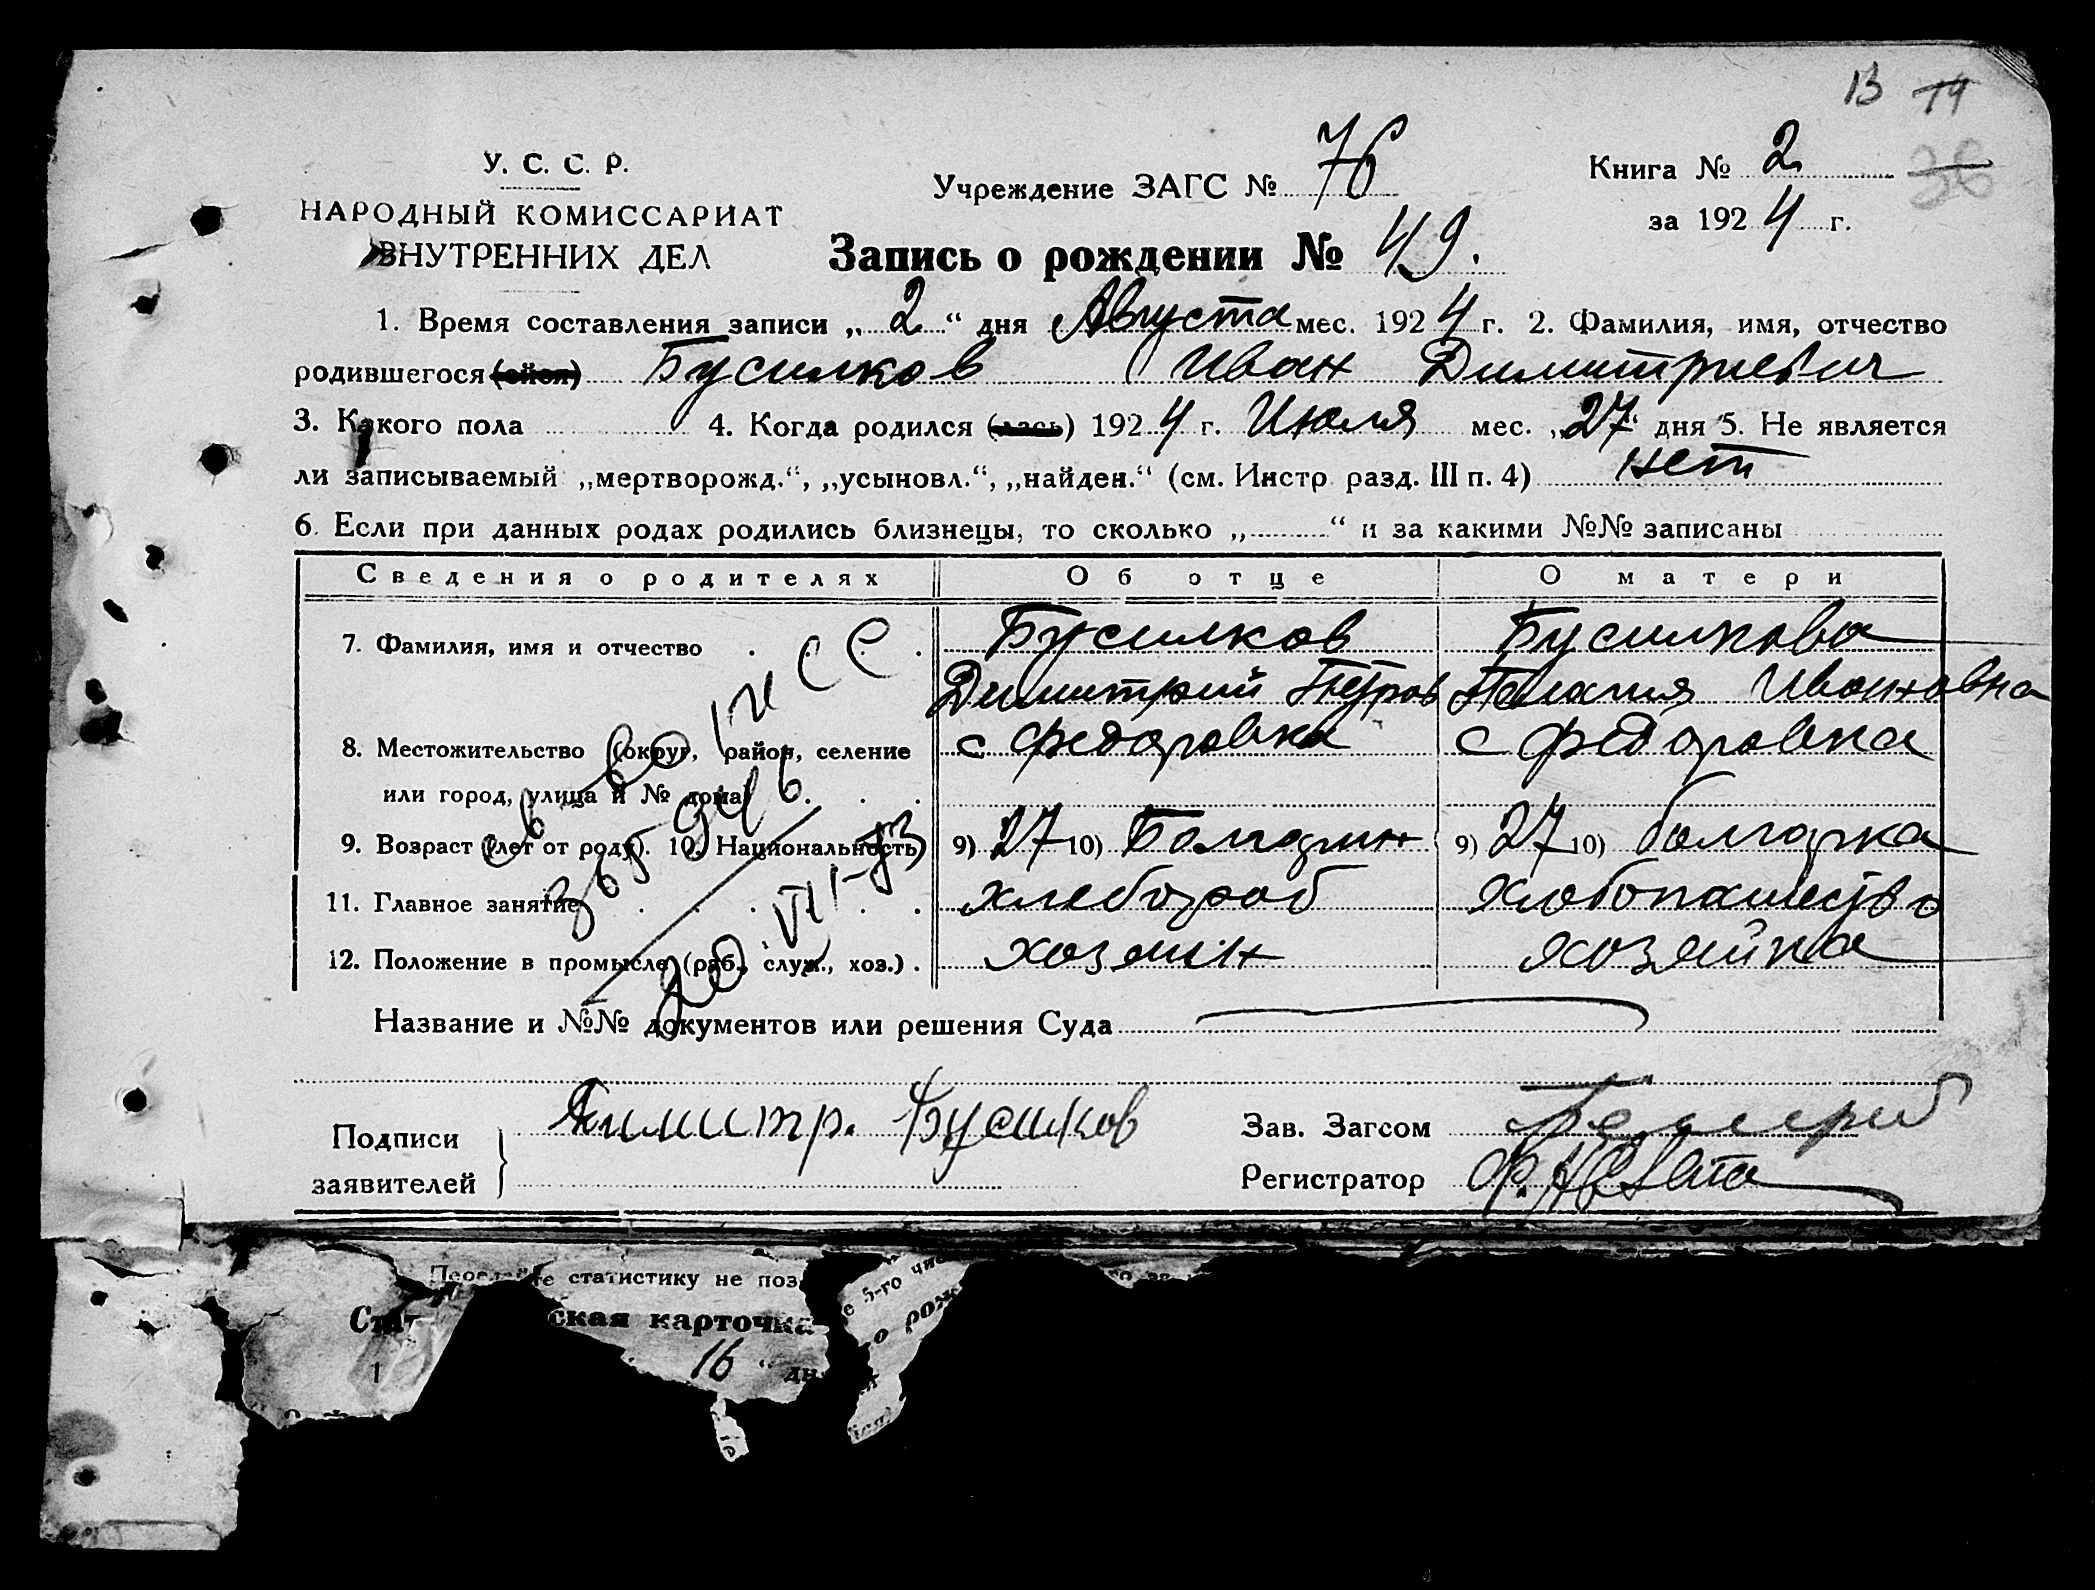 13 14
У. С. С. Р.
Учреждение ЗАГС № 76
Книга № 2
38
НАРОДНЫЙ КОМИССАРИАТ
за 1924 г.
ВНУТРЕННИХ ДЕЛ
Запись о рождении № 49.
1. Время составления записи „2“ дня Августа мес. 1924 г. 2. Фамилия, имя, отчество
родившегося (ейся) Бусилков Иван Димитриевич
3. Какого пола 4. Когда родился (лась) 1924 г. Июля мес. „27“ дня 5. Не является
ли записываемый „мертворожд.“, „усыновл.“, „найден.“ (см. Инстр. разд. III п. 4) нет
6. Если при данных родах родились близнецы, то сколько „ “ и за какими №№ записаны
Сведения о родителях Об отце О матери
7. Фамилия, имя и отчество Бусилков Бусилкова
Димитрий Петров Пелагия Ивановна
8. Местожительство (округ, район, селение с Федоровка с Федоровка
или город, улица и № дома)
9. Возраст (лет от роду). 10. Национальность 9) 27 10) Болгарин 9) 27 10) болгарка
11. Главное занятие хлебороб хлебопашество
12. Положение в промысле (раб., служ., хоз.) хозяин хозяйка
св-во
20.VII-73
Название и №№ документов или решения Суда
Подписи заявителей Димитр. Бусилков
Зав. Загсом
Регистратор
статистику не поз
е 5-го чис
Стат ская карточка
о рож
1 16 “ дн